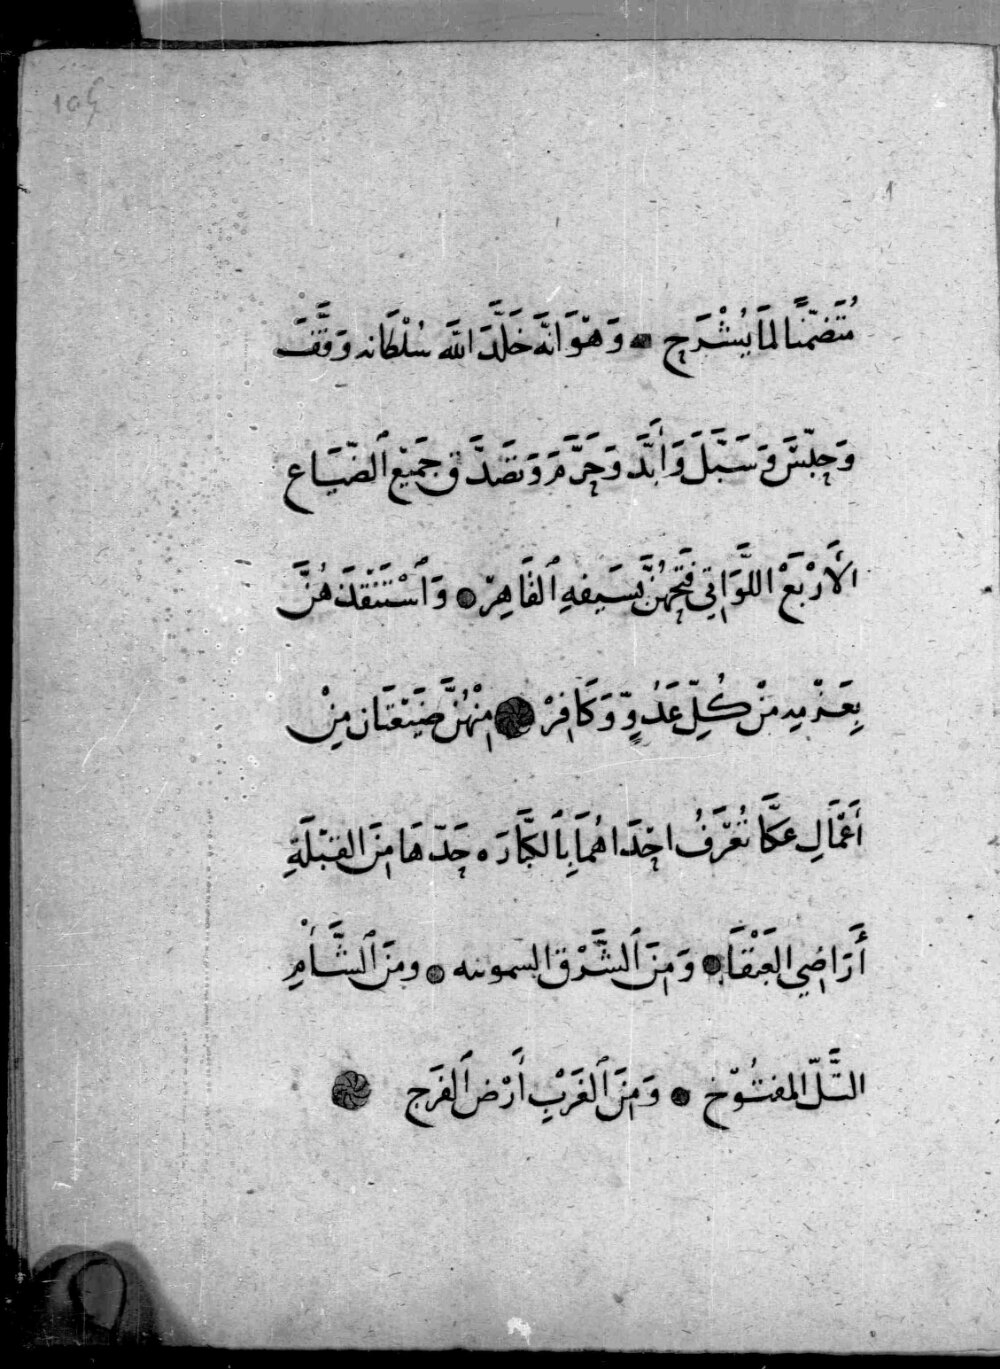 ١٥٤
١
مُتَضَمِّنًا لِمَا يُشْرَح وَهُوَ أَنَّهُ خَلَّدَ اللَّه سُلْطَانه وَقَّفَ
وَحَبَّسَ وَسَبَّلَ وَأَبَّدَ وَحَرَّمَ وَتَصَدَّقَ جَمِيْعَ ٱلضِّيَاع
الأَرْبَعْ اللَّوَاتِي فَتَحَهُنَّ بِسَيفِهِ ٱلقَاهِرْ وَٱسْتَنْقَذَهُنَّ
بِعَزْمِهِ مِنْ كُلِّ عَدُوٍّ وَكَافِرْ مِنْهُنَّ ضَيْعَتَان مِنْ
أَعْمَالِ عَكَّا تُعْرَفُ احْدَاهُمَا بِٱلكَبَّارَه حَدّهَا مِنَ القِبْلَةِ
أَرَاضِي العَنْقَا وَمِنَ ٱلشَّرْق السمونيه ومِنَ ٱلشَّأمِ
التَّلّ المفتُوْح وَمِنَ ٱلغَرْبِ أَرْض ٱلفَرَج